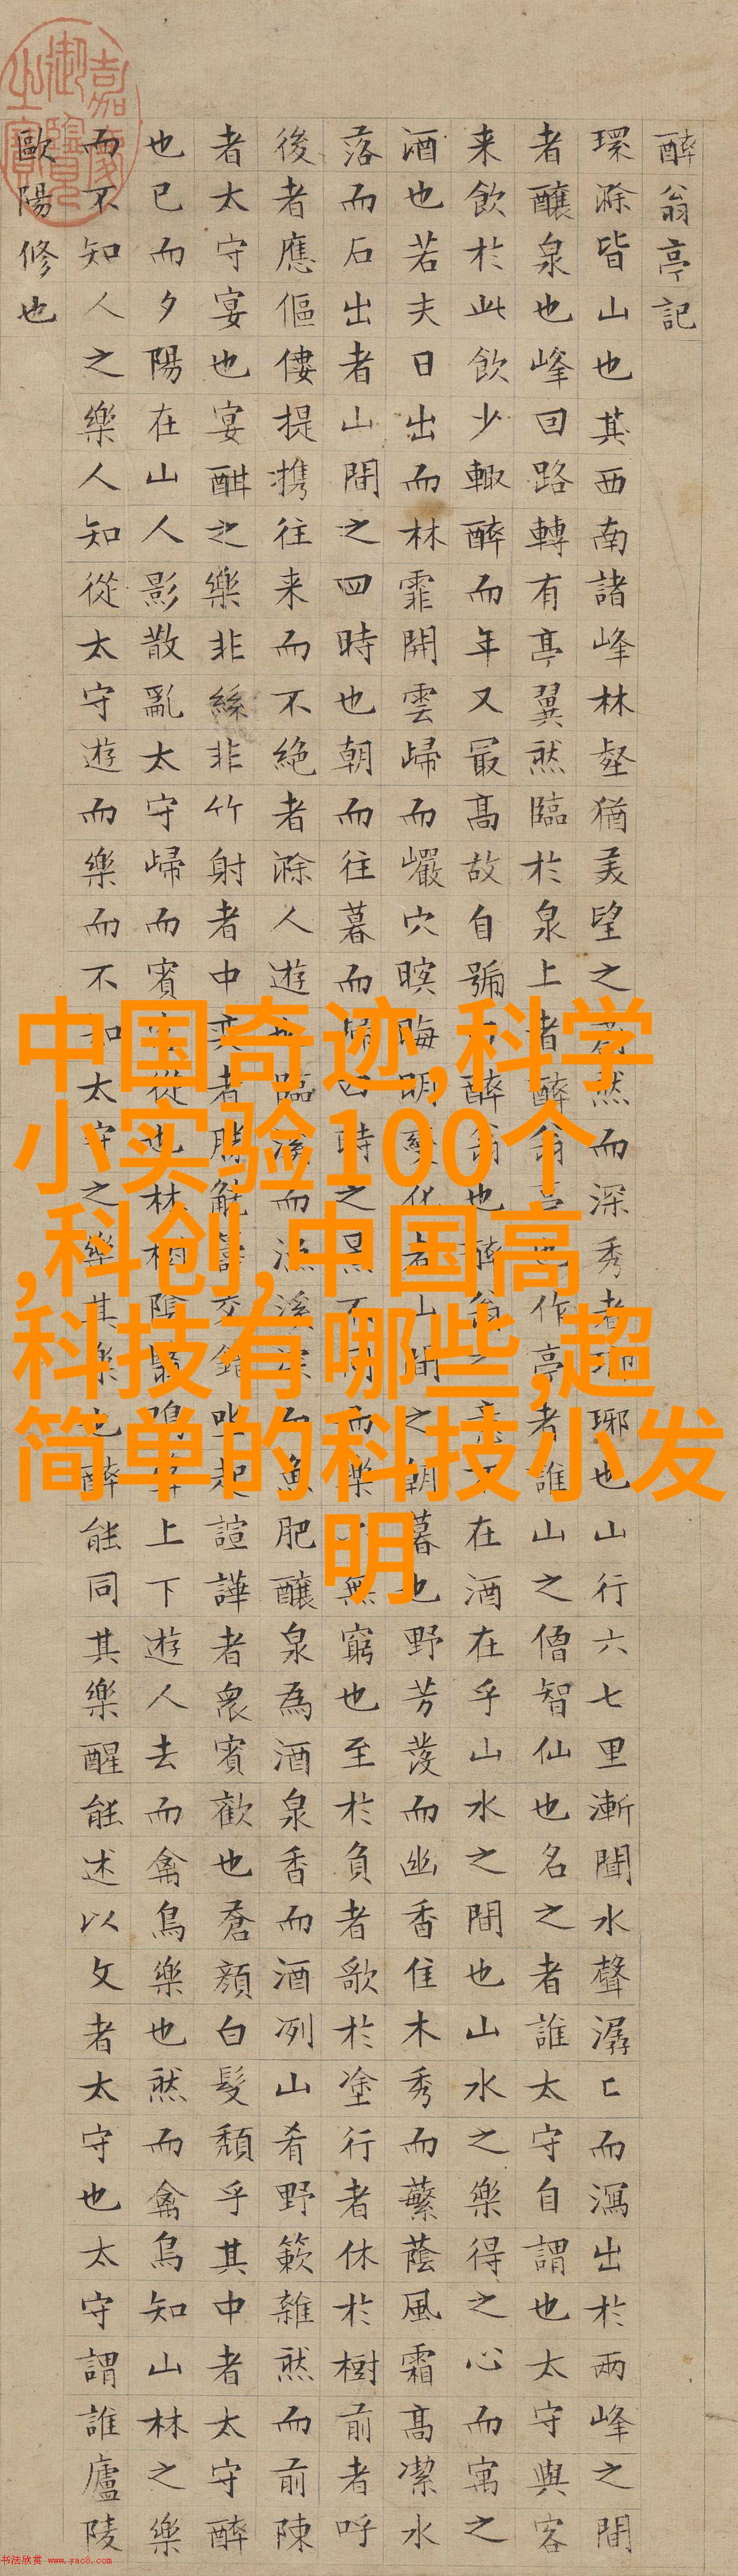 醉翁亭記
環滁皆山也其西南諸峰林壑猶美望之然而深秀者琊也山行六七里漸聞水聲潺〻而瀉出於兩峰之間
者醸泉也峰回路轉有亭翼然臨於泉上者醉翁亭也作亭者誰山之僧智仙也名之者誰太守自謂也太守與客
来飲於此飲少輒醉而年又最高故自號醉翁也醉翁之在酒在乎山水之間也山水之樂得之心而寓之
酒也若夫日出而林霏開雲歸而巖穴暝晦明變化者山間之朝暮也野芳發而幽香佳木秀而蘩蔭風霜高潔水
落而石出者山間之四時也朝而往暮而四時之景不同而樂無窮也至於負者歌於塗行者休於樹前者呼
後者應傴僂提携往来而不絶者滁人遊也臨溪而漁溪而魚肥醸泉為酒泉香而酒冽山肴野簌雜然而前陳
者太守宴也宴酣之樂非絲非竹射者中奕者勝觥籌交錯坐起諠譁者衆賓歡也蒼顔白髮頹乎其中者太守醉
也已而夕陽在山人影散亂太守歸而賓從也林樹陰翳鳴上下遊人去而禽鳥樂也然而禽鳥知山林之樂
而不知人之樂人知從太守遊而樂而不知太守之樂其樂也醉能同其樂醒能述以文者太守也太守謂誰廬陵
歐陽修也
中国奇迹,科学
小实验100个
,科创,中国高
科技有哪些,超
简单的科技小发
明
书法欣赏 www.yac8.com